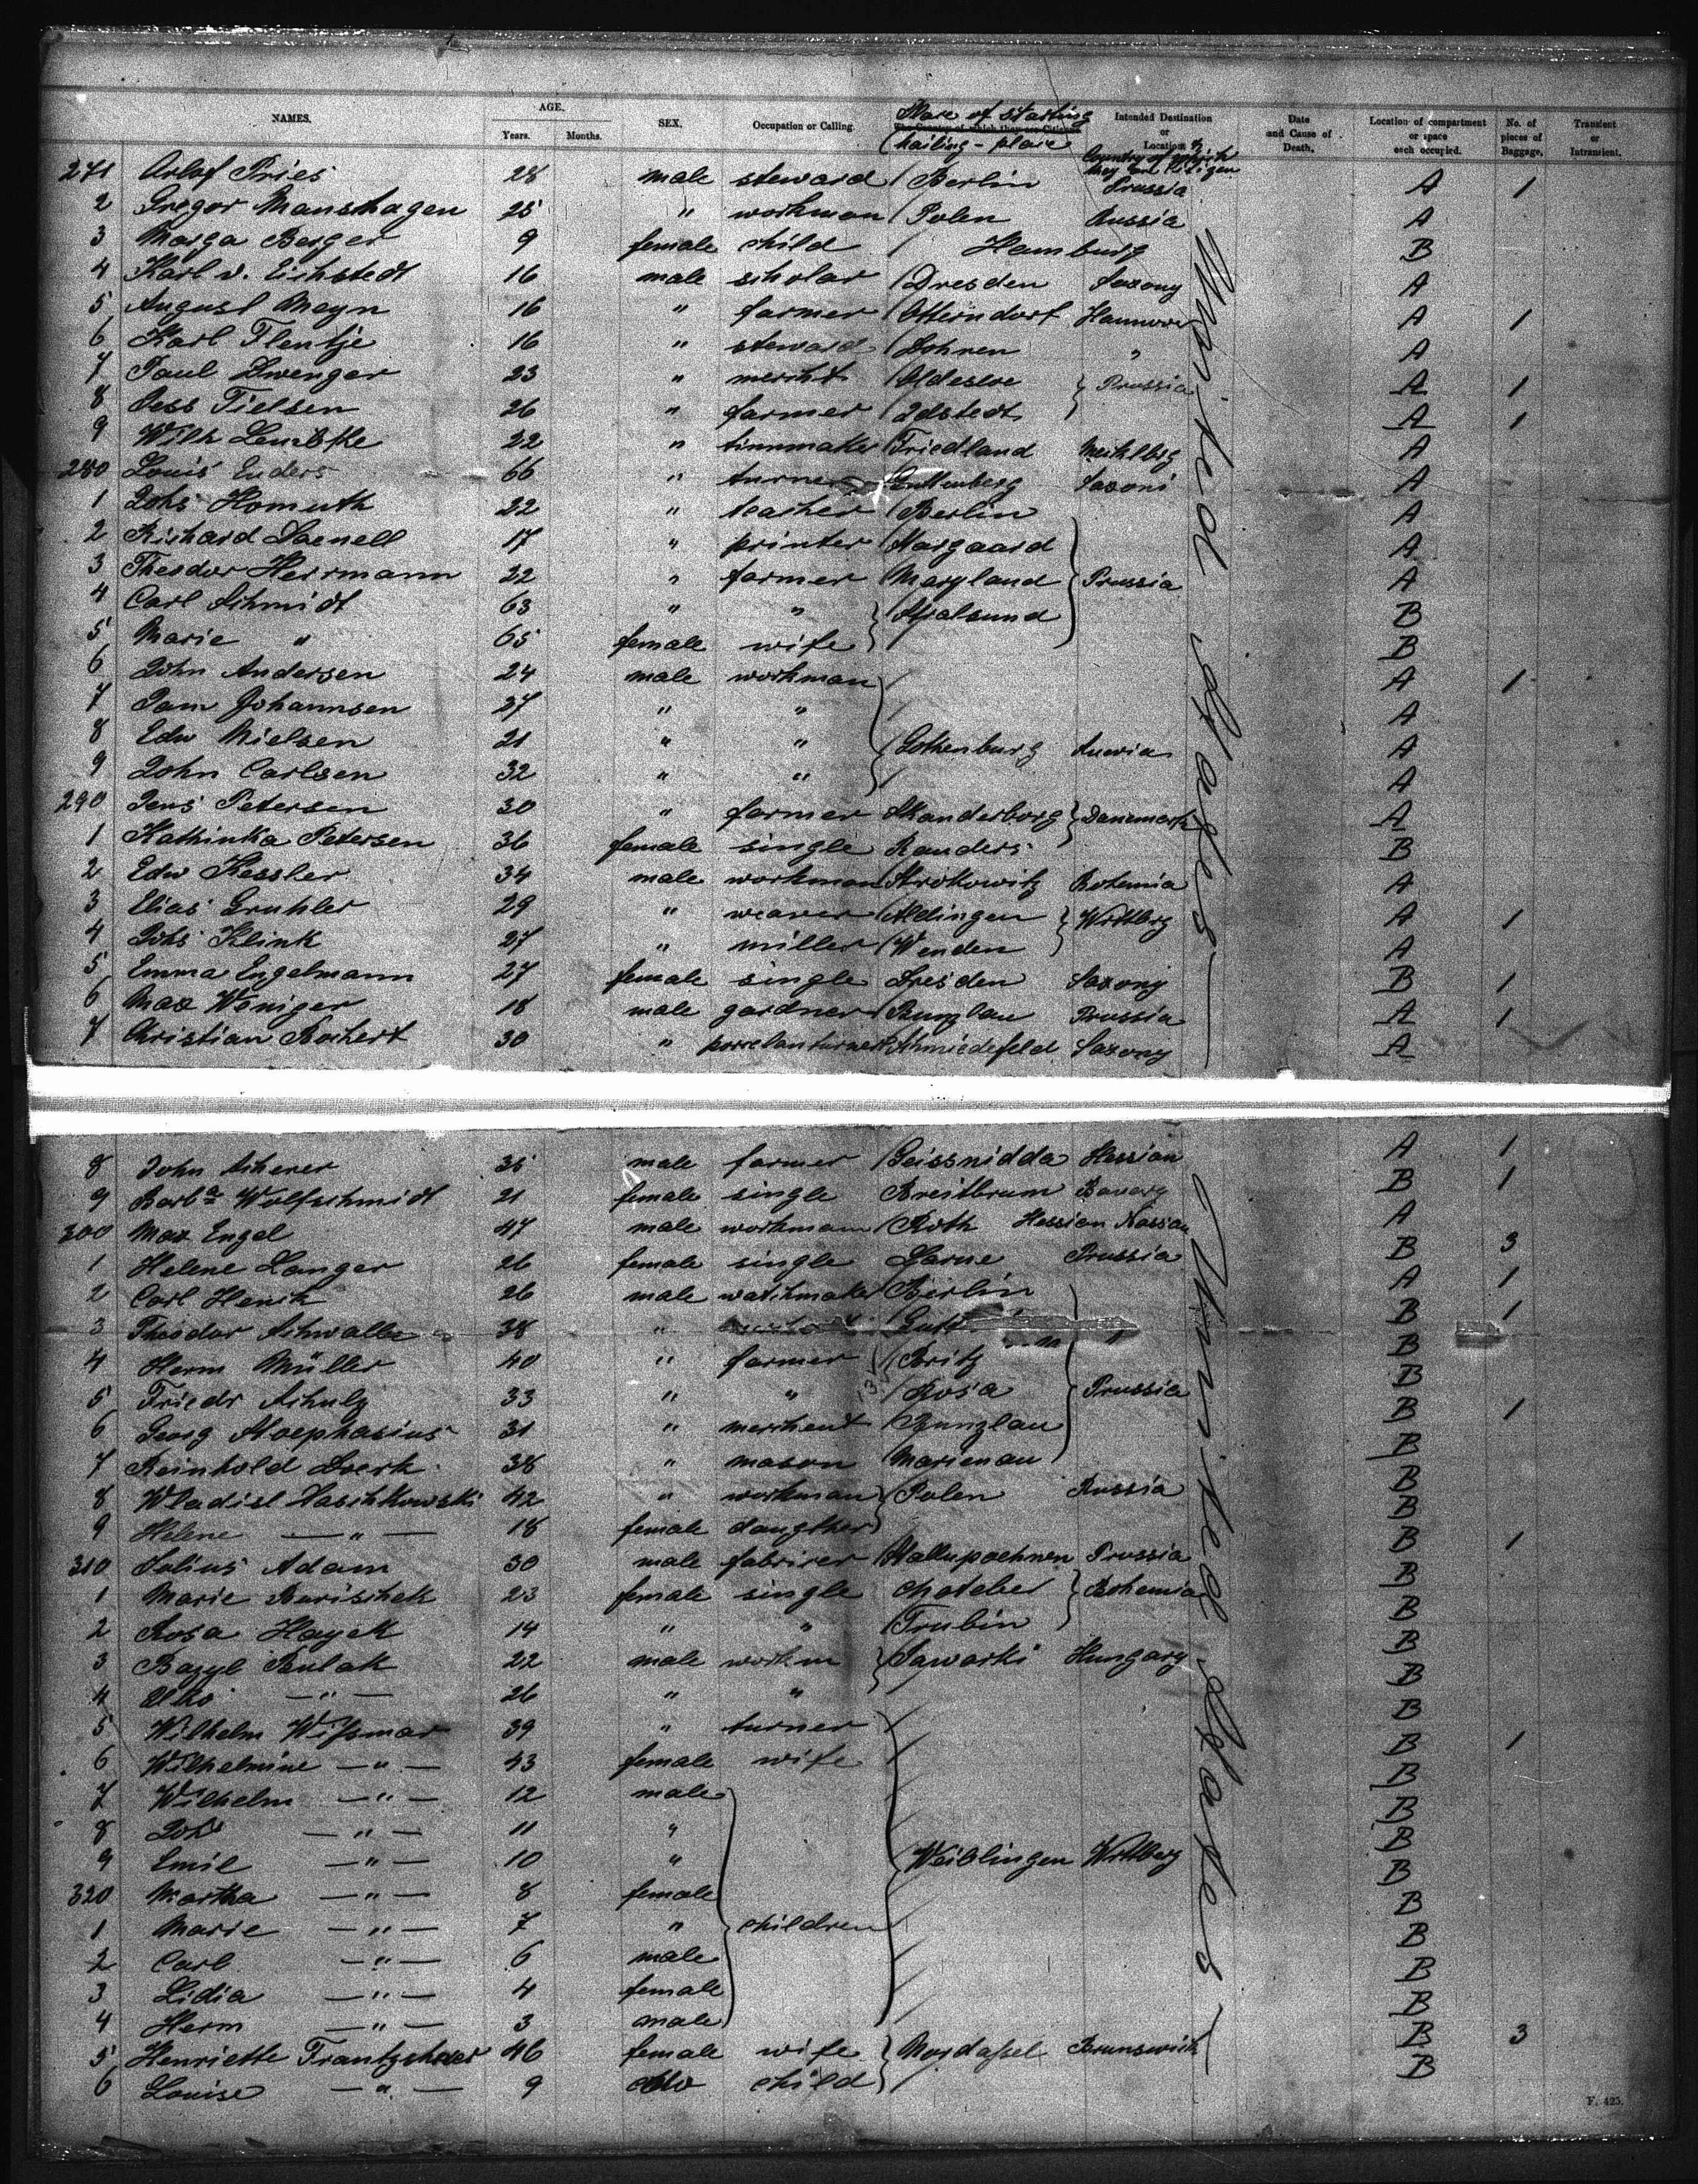 NAMES. AGE. Years. Months. SEX. Occupation or Calling. Place of starting (hailing-place Intended Destination or Location Country of which they are Citizen Date and Cause of Death. Location of compartment or space each occupied. No. of pieces of Baggage. Transient or Intransient.
271 Pries 28 male steward Berlin Prussia A 1
2 Gregor Manshagen 25 " workman Polen Russia A
3 Marga Berger 9 female child Hamburg B
4 Karl v. Eichstedt 16 male scholar Dresden Saxony A
5 August Meyn 16 " farmer Otterndorf Hannover A 1
6 Karl Flentje 16 " steward Dohren " A
7 Paul Zwenger 23 " mercht Oldesloe Prussia A 1
8 Tielsen 26 " farmer Idstedt A 1
9 Wilh Lembke 22 " tinnmaker Friedland Mecklbg A
280 Louis Enders 66 " turner Saxoni A
1 Johs Homuth 22 " teacher Berlin A
2 Richard 17 " printer Nargaard A
3 Theodor Herrmann 22 " farmer Maryland Prussia A
4 Carl Schmidt 63 " " Stralsund B
5 Marie " 65 female wife B
6 John Andersen 24 male workman A 1
7 Johannsen 27 " " A
8 Edw Nielsen 21 " " Gothenburg Suevia A
9 John Carlsen 32 " " A
290 Jens Petersen 30 " farmer Skanderborg Danemark A
1 Kathinka Petersen 36 female single Randers B
2 Edw Kessler 34 male workman Strokowitz Bohemia A
3 Elias Gruhler 29 " weaver Aldingen Wrttbrg A 1
4 Johs Klink 27 " miller Wenden A
5 Emma Engelmann 27 female single Dresden Saxony B 1
6 Max Weniger 18 male gardner Bunzlau Prussia A 1
7 Christian Bochert 30 " porcelanturner Schmiedefeld Saxony A
United States
8 John Scherer 35 male farmer Geissnidda Hessian A 1
9 Barba Wolfschmidt 21 female single Breitbrunn Bavarg B 1
300 Max Engel 47 male workman Roth Hessian Nassau A
1 Helene Langer 26 female single Prussia B 3
2 Carl Henck 26 male watchmaker Berlin A 1
3 Theodor Schwalbe 38 " B 1
4 Herm Müller 40 " farmer Britz B
5 Friedr Schulz 33 " " Rosa Prussia B
6 Georg Stoephasius 31 " merchent Bunzlau B 1
7 Reinhold Doerk 38 " mason Marienau B
8 Wladisl Haschkowski 42 " workman Polen Russia B
9 Helene — " — 18 female daugther B
310 Julius Adam 30 male fabricer Stallupoehnen Prussia B 1
1 Marie Borischek 23 female single Chotebor Bohemia B
2 Rosa Hayek 14 " " Trubin B
3 Bazyl Bulak 22 male workm Sawarki Hungary B
4 — " — 26 " " B
5 Wilhelm Wißmar 39 " turner B
6 Wilhelmine — " — 43 female wife B 1
7 Wilhelm — " — 12 male B
8 Joh — " — 11 " B
9 Emil — " — 10 " Weiblingen Wrttbrg B
320 Martha — " — 8 female B
1 Marie — " — 7 " children B
2 Carl — " — 6 male B
3 Lidia — " — 4 female B
4 Herm — " — 3 male B
5 Henriette 46 female wife Brunswick B 3
6 Louise — " — 9 child B
United States
F. 425.